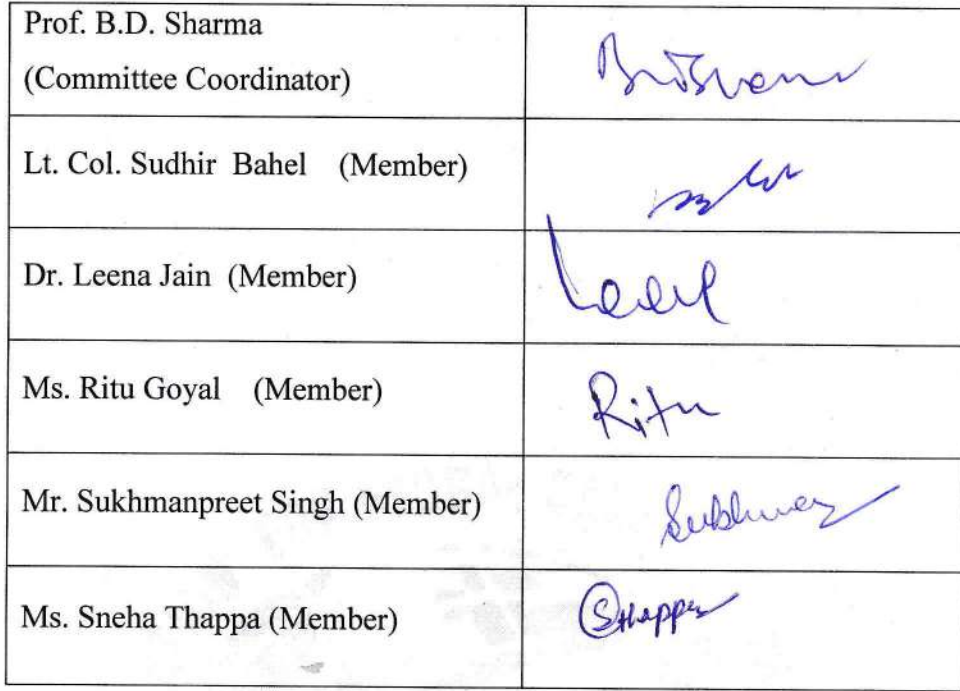 Prof. B.D. Sharma
(Committee Coordinator)
Lt. Col. Sudhir Bahel (Member)
Dr. Leena Jain (Member)
Ms. Ritu Goyal (Member)
Ritu
Mr. Sukhmanpreet Singh (Member)
Ms. Sneha Thappa (Member)